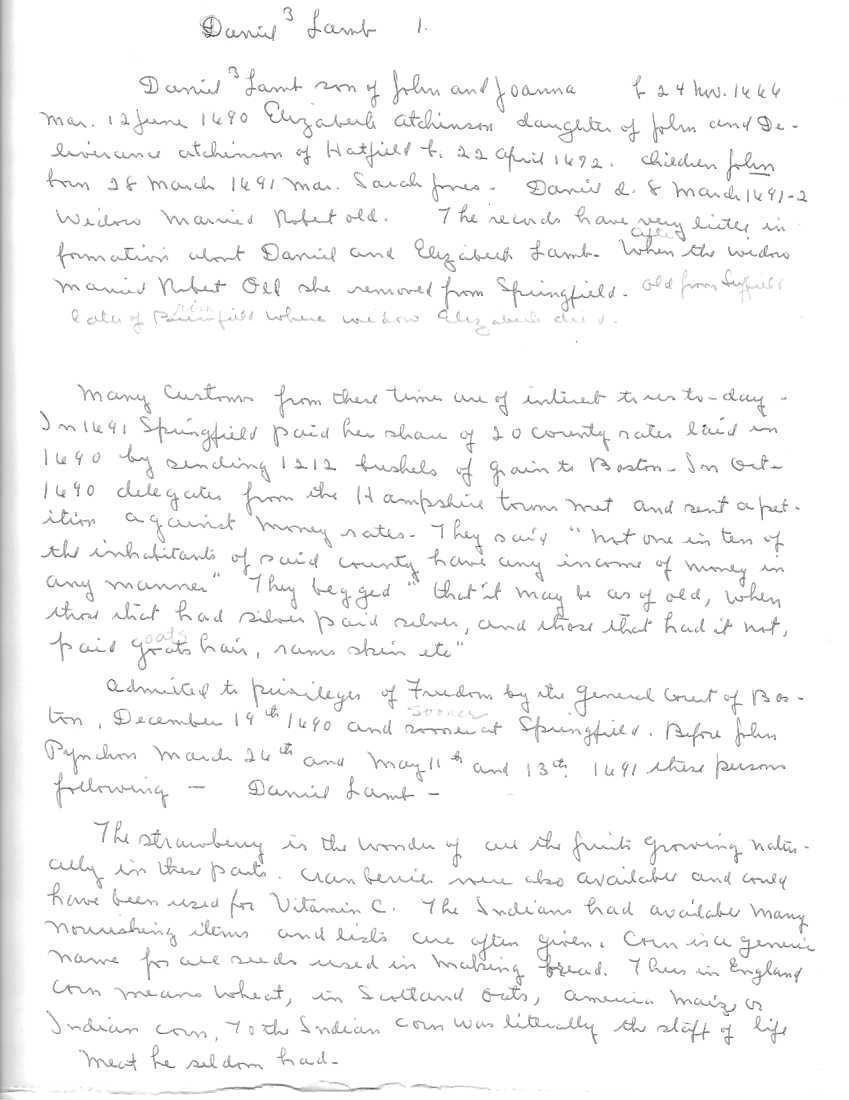 Daniel ³ Lamb 1.
Daniel ³ Lamb son of John and Joanna b 24 Nov. 1666
mar. 12 June 1690 Elizabeth Atchinson daughter of John and De-
liverance Atchinson of Hatfield b. 22 April 1692. Children John
born 28 March 1691 mar. Sarah Jones. Daniel d. 8 March 1691-2
Widow married Robert Old. The records have very little in
formation about Daniel and Elizabeth Lamb. After When the widow
married Robert Old she removed from Springfield. Old from Suffield
later of Brimfield where widow Elizabeth died.
Many customs from these times are of interest to us to-day.
In 1691 Springfield paid her share of 20 county rates laid in
1690 by sending 1212 bushels of grain to Boston. In Oct-
1690 delegates from the Hampshire towns met and sent a pet-
ition against money rates. They said "not one in ten of
the inhabitants of said county have any income of money in
any manner" They begged "that it may be as of old, when
those that had silver paid silver, and those that had it not,
paid goats goats hair, rams skin etc"
Admitted to privileges of Freedom by the General Court of Bos-
ton, December 19th 1690 and sooner sooner at Springfield. Before John
Pynchon March 26th and May 11th and 13th 1691 these persons
following — Daniel Lamb -
The strawberry is the wonder of all the fruits growing natur-
ally in these parts. Cranberries were also available and could
have been used for Vitamin C. The Indians had available many
nourishing items and lists are often given. Corn is a generic
name for all seeds used in making bread. Thus in England
corn means wheat, in Scotland oats, America maize or
Indian corn, To the Indian corn was literally the staff of life
meat he seldom had.